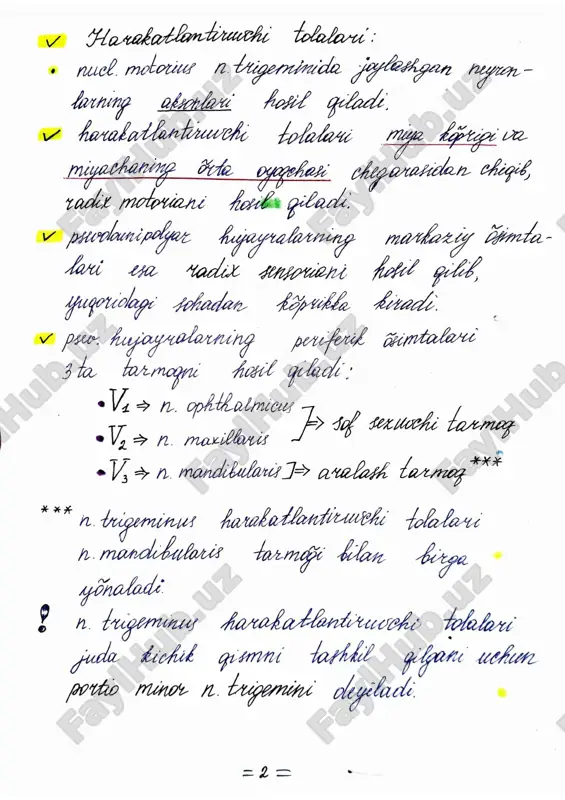 ✓ Harakatlantiruvchi tolalari:
• nucl. motorius n. trigeminida joylashgan neyron-
larning aksonlari hosil qiladi.
✓ harakatlantiruvchi tolalari miya ko̅prigi va
miyachaning o̅rta oyoqchasi chegarasidan chiqib,
radix motoriani hosil qiladi.
✓ psevdounipolyar hujayralarning markaziy o̅simta-
lari esa radix sensoriani hosil qilib,
yuqoridagi sohadan ko̅prikka kiradi.
✓ psev. hujayralarning periferik o̅simtalari
3 ta tarmoqni hosil qiladi:
• V1 ⇒ n. ophthalmicus
• V2 ⇒ n. maxillaris ]⇒ sof sezuvchi tarmoq
• V3 ⇒ n. mandibularis ]⇒ aralash tarmoq ***
*** n. trigeminus harakatlantiruvchi tolalari
n. mandibularis tarmog̅i bilan birga
yo̅naladi.
! n. trigeminus harakatlantiruvchi tolalari
juda kichik qismni tashkil qilgani uchun
portio minor n. trigemini deyiladi.
= 2 =
FaylHub.uz